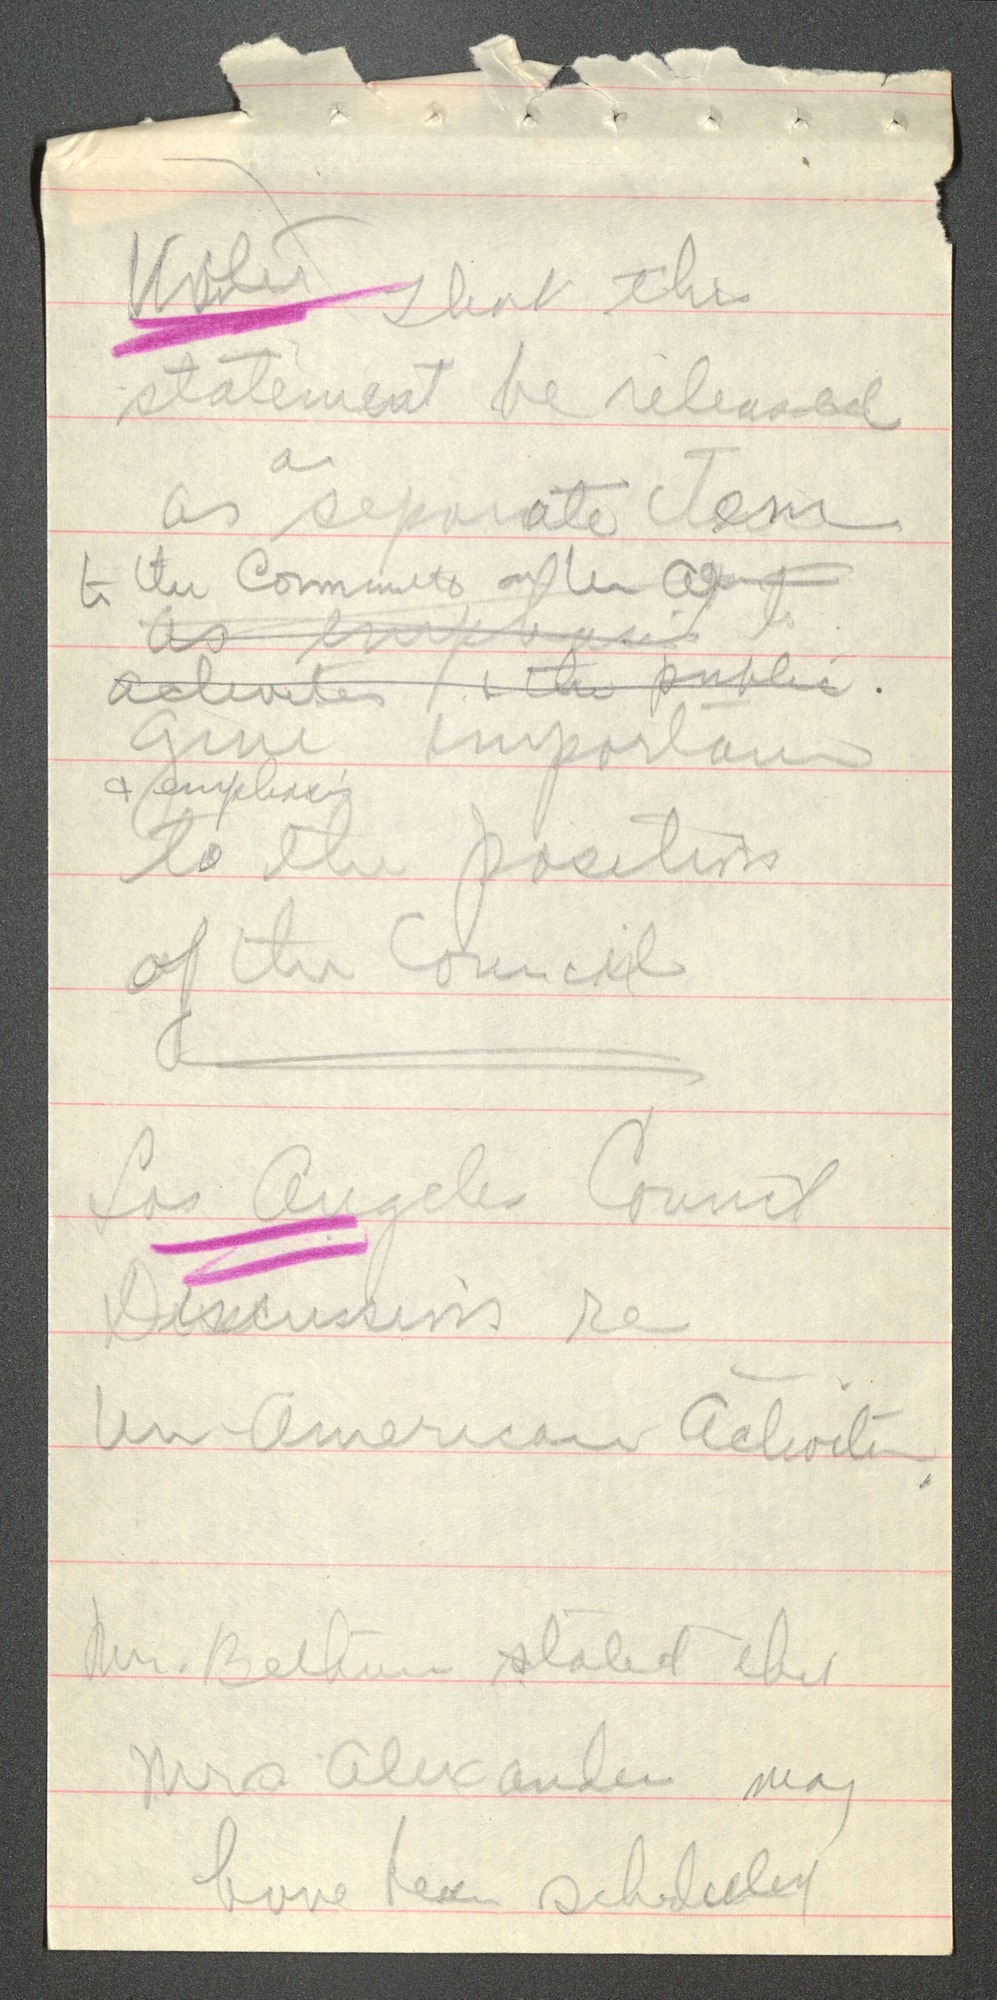 Voted that the
statement be released
a
as separate Item
to the Community after
as emphasis to
activities & the public.
give importance
& emphasis
to the position
of the Council
Los Angeles Council
Discussions re
Un-American Activities.
Mr. stated that
Mrs Alexander may
have been scheduled